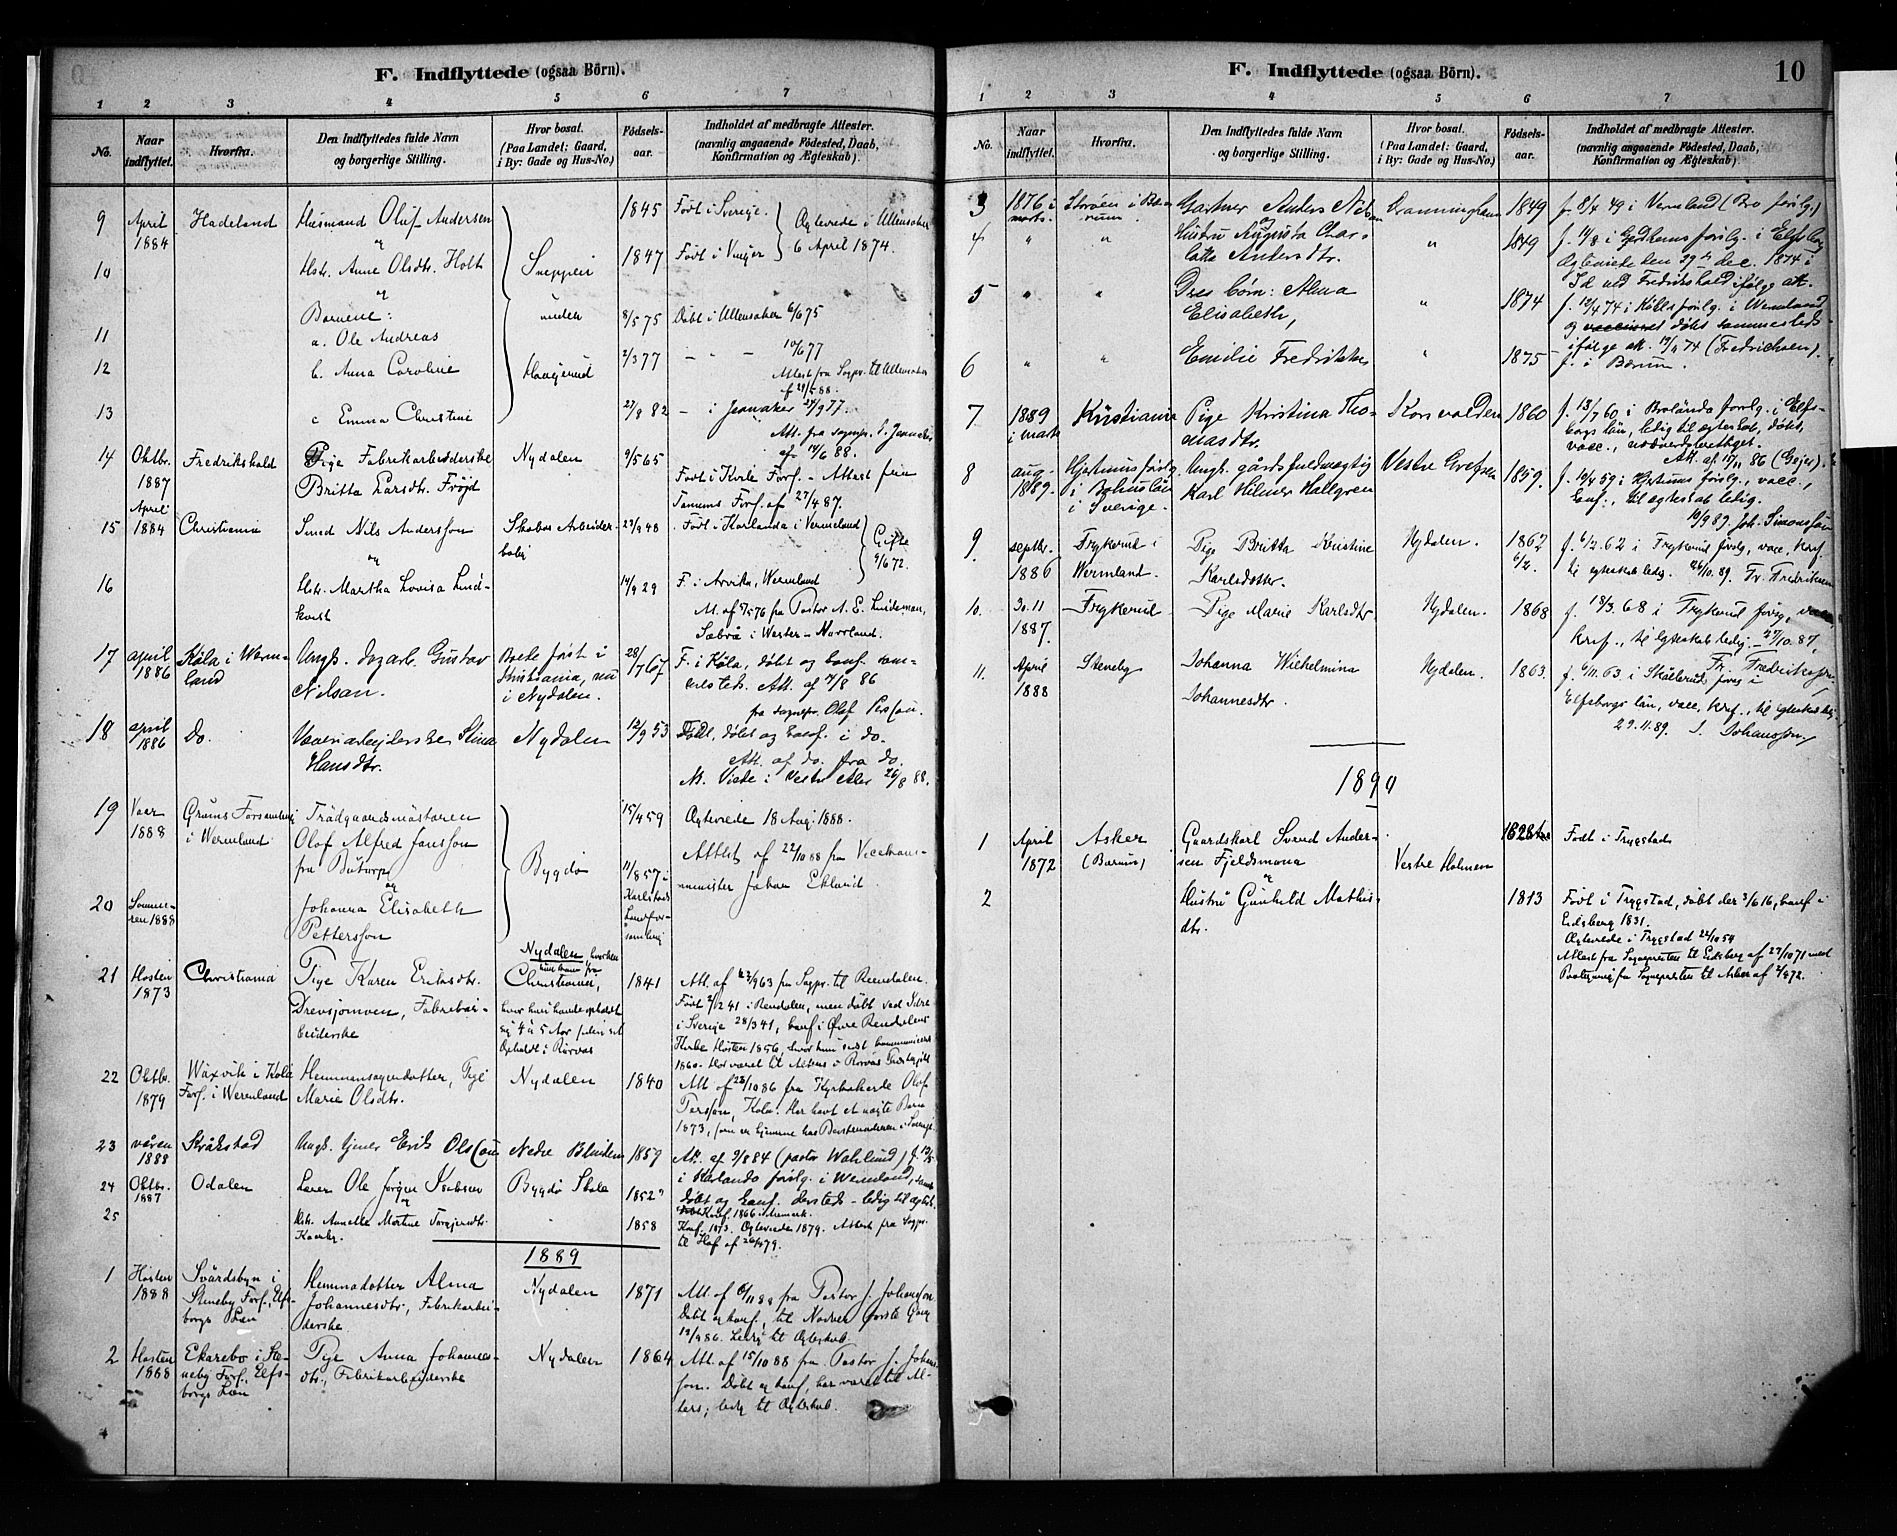 F. Indflyttede (ogsaa Börn).
1 2 3 4 5 6 7
No. Naar indflyttet. Hvorfra. Den Indflyttedes fulde Navn og borgerlige Stilling. Hvor bosat. (Paa Landet: Gaard, i By: Gade og Hus-No.) Födsels-aar. Indholdet af medbragte Attester. (navnlig angaaende Födested, Daab, Konfirmation og Ægteskab).
9 April 1884 Hadeland Husmand Oluf Andersen 1845 Født i Sverige. Ægteviede i Ullensaker 6 April 1874.
og
10 Hstr. Anne Olsdtr. Holt 1847 Født i Vinger
og
Børnene:
11 a. Ole Andreas 8/5 75 Døbt i Ullensaker 6/6 75
12 b. Anna Caroline 2/3 77 - - - 10/6 77
Attest fra Sogpr. til Ullensaker
13 c Emma Christine 27/8 82 - i Jevnaker
Att. fra sognpr. t. Jevnaker
af 14/6 88.
14 Oktbr. 1887 Fredrikshald Pige Fabrikarbeiderske Nydalen 9/5 65
Britta Larsdtr. Frøjd Attest fra
Tanums Forf. af 27/4 87.
15 April 1884 Christiania Smed Nils Andersson Skabos Arbeider-bolig 23/9 48 Født i Karlanda i Vermeland Gifte 9/6 72.
og
16 Hstr. Martha Lovisa Lind-kvist 14/9 29 F. i Arvika, Wermland
At. af 5/5 76 fra Pastor A. E. Lindsman,
Sæbrå i Wester-Norrland.
17 april 1886 Köla i Werm-land Ungk. dagarb. Gustav Nilsan. Boede först i Kristiania, nu i Nydalen. 28/1 67 F. i Köla, döbt og conf. sam-mesteds. Att. af 7/8 86
fra sognepr. Olaf Persson.
18 april 1886 Do. Væveriarbejderske Stina Hansdtr. Nydalen 12/9 53 Födt, döbt og conf. i do.
Att. af do. fra do.
N. Viede i Vestre Aker 26/8 88.
19 Vaar 1888 Grums Forsamling i Wermland Trädgaardsmästaren 15/4 59 Ægteviede 18 Aug. 1888.
Olof Alfred Jansson
fra Buturp Bygdø Attest af 22/10 88 fra
og
minister Johan Eklund
20 Sommeren 1888 Johanna Elisabeth Pettersson 11/8 57 i Karlstads Landsfor-samling
21 Høsten 1873 Christiania Pige Karen Eriksdtr. Nydalen, hvorhen hun kom fra Christiania, 1841 Att. af 22/9 63 fra Sogpr. til Rendalen.
Drevsjømoen, Fabrikar-beiderske Født 2/2 41 i Rendalen, men døbt ved Idre
i Sverige 28/3 41, conf. i Øvre Rendalens
Kirke Høsten 1856, hvor hun sidst kommunicerede
1860.
22 Oktbr. 1879 Waxvik i Köla Forf. i Wermland Hemmansegendotter, Pige Marie Olsdtr. Nydalen 1840 Att. af 28/10 86 fra Kyrkoherde Olof
Persson, Köla. Har havt et uægte Barn
1873, som er hjemme hos Bestemoderen i Sverige.
23 våren 1888 Kråkstad Ungk. tjener Erik Olsson Nedre Blindern 1859 Att. af 9/8 84 (pastor Wahlund)
i Karlanda forslg. i Wermland,
döbt og conf. dersteds - ledig til ægtesk.
24 Oktbr. 1887 Odalen Lærer Ole Jørgen Isaksen Bygdø Skole 1852
og
25 Hstr. Annette Martine Torgersdtr. 1858 Konf. 1873. Ægteviede 1879. Attest fra Sogpr.
til Hof af
1889
1 Høsten 1888 Svärdsbyn i Steneby Forf., Elfs-borgs Län Hemmadotter Alma Johannesdtr., Fabrikarbei-derske Nydalen 1871 Att. af fra Pastor J. Johansson
Døbt og konf., til Nadver første Gang
Ledig til Ægteskab.
2 Høsten 1888 Ekarebo i Ste-neby Forf., Elfs-borgs Län Pige Anna Johannes-dtr., Fabrikarbeiderske Nydalen 1864 Att. af 15/10 88 fra Pastor J. Johans-
son. Døbt og konf., har været til Al-
ters; ledig til Ægteskab.
F. Indflyttede (ogsaa Börn). 10
1 2 3 4 5 6 7
No. Naar indflyttet. Hvorfra. Den Indflyttedes fulde Navn og borgerlige Stilling. Hvor bosat. (Paa Landet: Gaard, i By: Gade og Hus-No.) Födsels-aar. Indholdet af medbragte Attester. (navnlig angaaende Födested, Daab, Konfirmation og Ægteskab).
3 1876 i marts. i Bærum. Gartner Anders Nilsen 1849 f. 8/4 49 i Vermland (Bro forslg.)
og
4 " " Hustru Augusta Char-lotte Andersdtr. " 1849 forslg. i Elfsborg
Ægteviede den 29de dec. 1874 i
Id ved Fredrikshald ifølge att.
5 " " Dres børn: Alma Elisabeth, " 1874 i Wermland
og vaccineret döbt sammesteds
ifølge att. (Fredrikssen).
6 " " Emilie Fredrikke " 1875 f. i Bærum.
7 1889 i marts Kristiania Pige Kristina Tho-masdtr. Korsvolden 1860 f. 13/7 60 i Brolända forslg. i Elfs-
borgs län, ledig til ægteskab, døbt,
vacc.,
Att. af 17/11 86 (Gejer).
8 aug. 1889. Hjertums forslg. i Bohuslän i Sverige. Ungk. gårdsfuldmægtig Karl Hilmer Hallgren Vestre Grefsen 1859. f. 10/4 59 i Hjertums forslg., vacc.,
conf., til ægteskab ledig.
10/9 89. Joh. Simonsson
9. septbr. 1886 Frykerud i Wermland. Pige Britta Kristine Karlsdotr. Nydalen. 1862 6/2. f. 6/2. 62 i Frykerud forslg., vacc., krf.
til egteskab ledig. 26/10. 89. Fr. Fredriksson
10. 30.11 1887. Frykerud Pige Marie Karlsdtr Nydalen. 1868 f. 18/3. 68 i Frykerud forsg., vacc.
krf., til egteskab ledig. 27/10. 87,
Fr. Fredriksson.
11. April 1888 Steneby Johanna Wilhelmina Johannesdtr. Nydalen. 1863. f. 6/11. 63. i Skållerud forsg. i
Elfsborgs län, vacc., krf., til egteskab ledig.
29.11.89. J. Johansson.
1890
1 April 1872 Asker (Bærum) Gaardskarl Svend Ander-sen Fjeldsmona Vestre Holmen 1828 Født i Trygstad
og
2 Hustru Gunhild Mathis-dtr. 1813 Født i Trygstad, døbt der 3/6 16, conf. i
Eidsberg 1831.
Ægteviede i Trygstad 22/10 54
Attest fra Sognepresten til Eidsberg af 27/10 71 med
Paategning fra Sognepresten til Asker af 2/4 72.